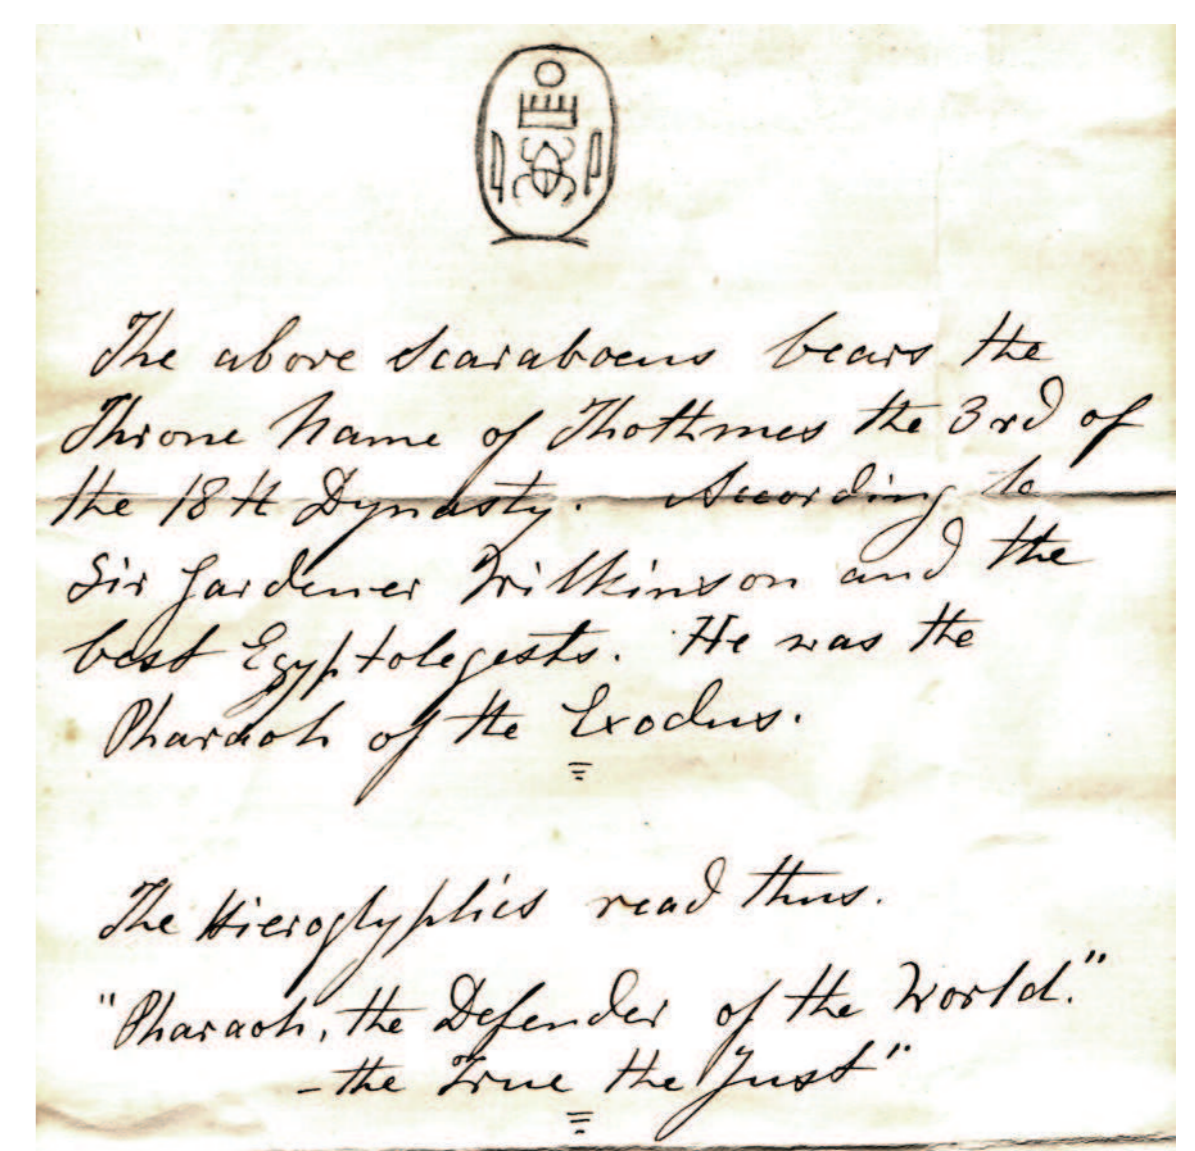 The above Scaraboeus bears the
Throne Name of Thothmes the 3rd of
the 18th Dynasty. According to
Sir Gardener Wilkinson and the
best Egyptolegests. He was the
Pharaoh of the Exodus.
The Hieroglyphics read thus.
"Pharaoh, the Defender of the World."
- the True the Just"